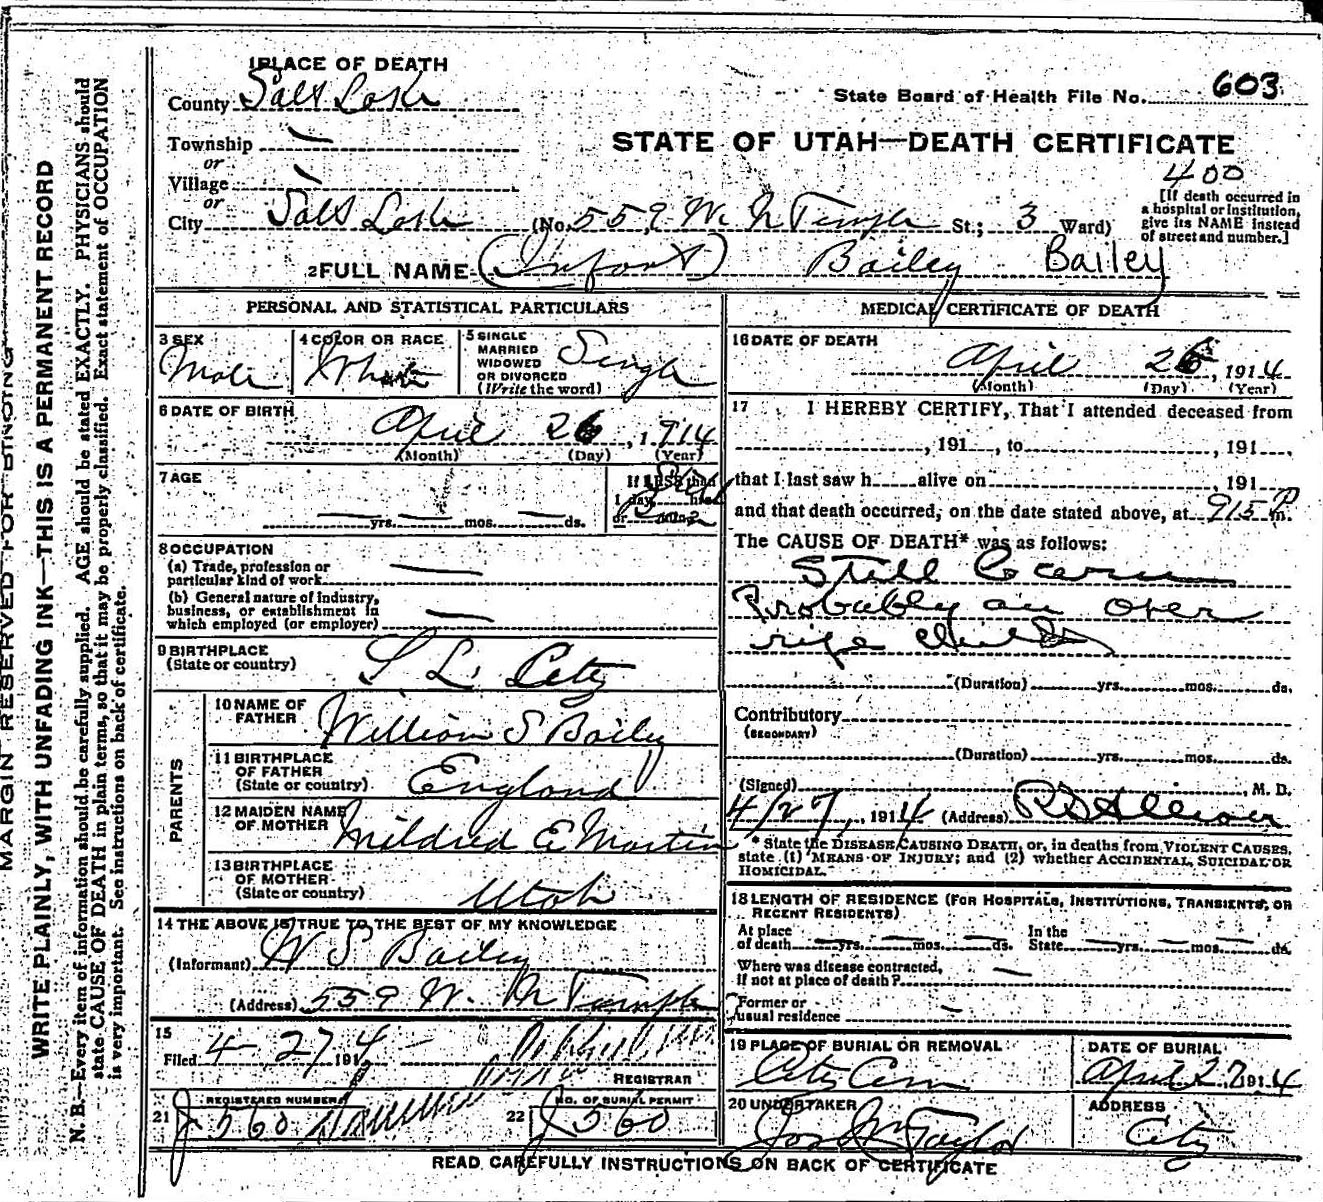 MARGIN RESERVED FOR BINDING
WRITE PLAINLY, WITH UNFADING INK—THIS IS A PERMANENT RECORD
N. B.—Every item of information should be carefully supplied. AGE should be stated EXACTLY. PHYSICIANS should
state CAUSE OF DEATH in plain terms, so that it may be properly classified. Exact statement of OCCUPATION
is very important. See instructions on back of certificate.
1 PLACE OF DEATH
County Salt Lake
State Board of Health File No. 603
Township —
or
STATE OF UTAH—DEATH CERTIFICATE
Village —
or
400
City Salt Lake (No. 559 W. N Temple St.; 3 Ward)
[If death occurred in
a hospital or institution,
give its NAME instead
of street and number.]
2 FULL NAME (Infant) Bailey Bailey
PERSONAL AND STATISTICAL PARTICULARS
3 SEX
Male
4 COLOR OR RACE
White
5 SINGLE
MARRIED
WIDOWED
OR DIVORCED
(Write the word)
Single
6 DATE OF BIRTH
April 26, 1914
(Month) (Day) (Year)
7 AGE
— yrs. — mos. — ds.
If LESS than
1 day, hrs.
or min.?
8 OCCUPATION
(a) Trade, profession or
particular kind of work —
(b) General nature of industry,
business, or establishment in
which employed (or employer) —
9 BIRTHPLACE
(State or country)
S L. City
PARENTS
10 NAME OF
FATHER
William S Bailey
11 BIRTHPLACE
OF FATHER
(State or country)
England
12 MAIDEN NAME
OF MOTHER
Mildred E Martin
13 BIRTHPLACE
OF MOTHER
(State or country)
Utah
14 THE ABOVE IS TRUE TO THE BEST OF MY KNOWLEDGE
(Informant) W S Bailey
(Address) 559 W. N Temple
15
Filed 4-27, 1914
REGISTRAR
21 REGISTERED NUMBER
J 560
22 NO. OF BURIAL PERMIT
J 560
MEDICAL CERTIFICATE OF DEATH
16 DATE OF DEATH
April 26, 1914
(Month) (Day) (Year)
17 I HEREBY CERTIFY, That I attended deceased from
, 191 , to , 191
that I last saw h alive on , 191
and that death occurred, on the date stated above, at 915 P m.
The CAUSE OF DEATH* was as follows:
Still born
Probably an over
ripe child
(Duration) yrs. mos. ds.
Contributory
(SECONDARY)
(Duration) yrs. mos. ds.
(Signed) , M. D.
4/27, 1914 (Address)
* State the DISEASE CAUSING DEATH, or, in deaths from VIOLENT CAUSES,
state (1) MEANS OF INJURY; and (2) whether ACCIDENTAL, SUICIDAL OR
HOMICIDAL.
18 LENGTH OF RESIDENCE (FOR HOSPITALS, INSTITUTIONS, TRANSIENTS, OR
RECENT RESIDENTS)
At place
of death — yrs. — mos. — ds.
In the
State — yrs. — mos. — ds.
Where was disease contracted,
if not at place of death? —
Former or
usual residence —
19 PLACE OF BURIAL OR REMOVAL
City Cem
DATE OF BURIAL
April 27 1914
20 UNDERTAKER
Jos Wm Taylor
ADDRESS
City
READ CAREFULLY INSTRUCTIONS ON BACK OF CERTIFICATE